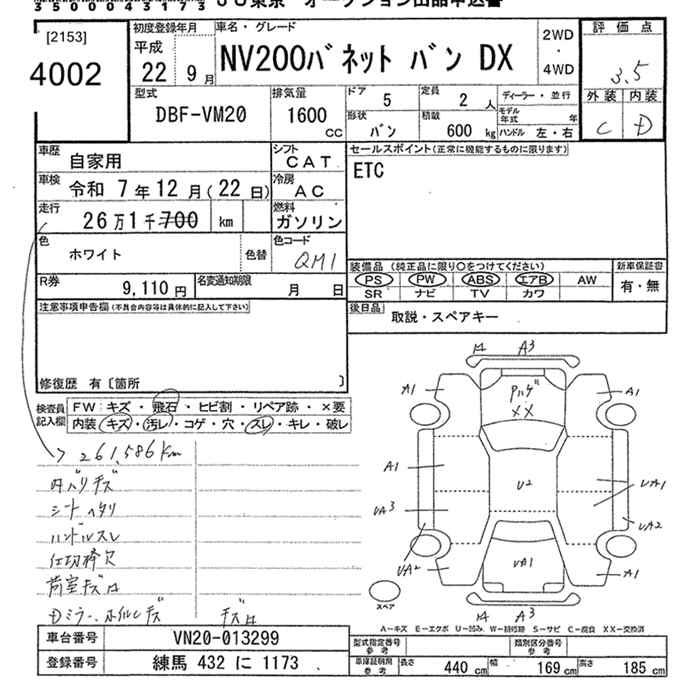 35000043173 JU東京 オークション出品申込書
[2153]
4002
初度登録年月
平成
22年9月
車名・グレード
NV200バネット バン DX
2WD
・
4WD
評価点
3.5
外装 内装
C D
型式
DBF-VM20
排気量
1600
CC
ドア
5
定員
2人
ディーラー・並行
モデル年式 年
形状
バン
積載
600 kg
ハンドル 左・右
車歴
自家用
シフト
CAT
セールスポイント(正常に機能するものに限ります)
ETC
車検
令和 7年12月(22日)
冷房
AC
走行
26万1千700 km
燃料
ガソリン
色
ホワイト
色替
色コード
QM1
装備品 (純正品に限り○をつけてください)
PS PW ABS エアB AW
SR ナビ TV カワ
新車保証書
有・無
R券
9,110円
名変通知期限
月 日
後日品
取説・スペアキー
注意事項申告欄(不具合内容等は具体的に記入して下さい)
修復歴 有〔箇所 〕
検査員
記入欄
FW:キズ・飛石・ヒビ割・リペア跡・×要
内装(キズ・汚レ・コゲ・穴・スレ・キレ・破レ)
261,586km
内バリキズ
シートヘタリ
ハンドルスレ
仕切棒欠
荷室キズ凹
Dミラー、ホイルCキズ キズ凹
A3
A1
A1
Pハゲ
XX
A1
U2
UA1
UA3
UA2
UA2
UA1
A1
A3
スペア
A-キズ E-エクボ U-凹み W-補修跡 S-サビ C-腐食 XX-交換済
車台番号
VN20-013299
登録番号
練馬 432 に 1173
型式指定番号
参考
類別区分番号
参考
車庫証明用
参考
長さ
440 cm
幅
169 cm
高さ
185 cm